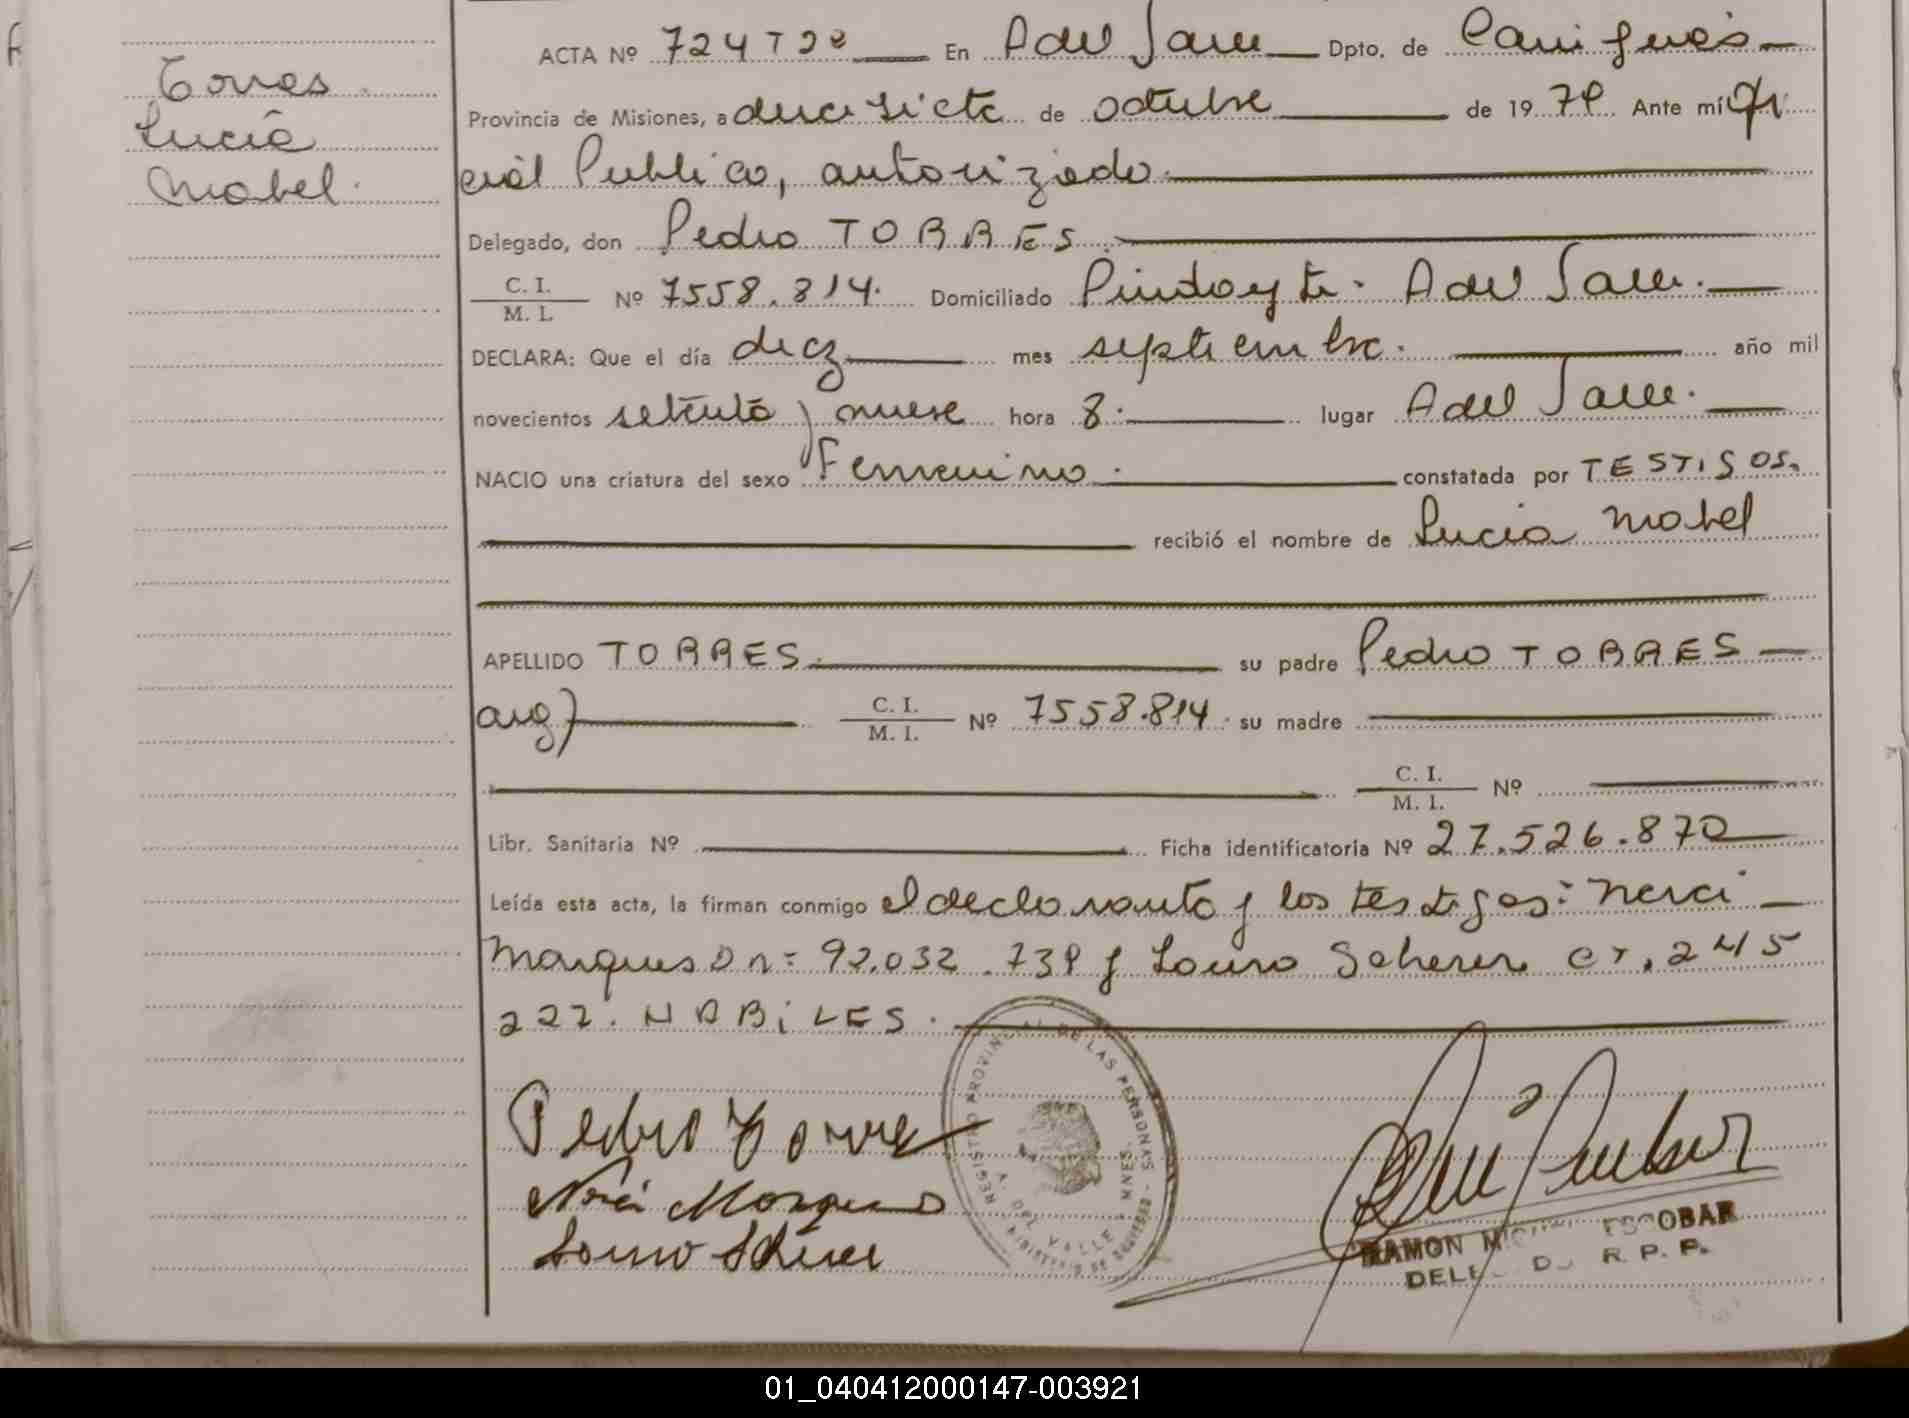 Torres
Lucía
Mabel.
ACTA Nº 724 T 2º En A del Valle Dpto. de Cainguás
Provincia de Misiones, a diecisiete de octubre de 1979 Ante mí Ofi
cial Publico, autorizado.
Delegado, don Pedro TORRES.
C. I.
M. I. Nº 7558.814. Domiciliado Pindoyti - A del Valle.
DECLARA: Que el día diez mes septiembre. año mil
novecientos setenta y nueve hora 8. lugar A del Valle.
NACIO una criatura del sexo Femenino. constatada por TESTIGOS.
recibió el nombre de Lucia Mabel
APELLIDO TORRES. su padre Pedro TORRES
arg) C. I.
M. I. Nº 7558.814. su madre
C. I.
M. I. Nº
Libr. Sanitaria Nº Ficha identificatoria Nº 27.526.870
Leída esta acta, la firman conmigo el declarante y los testigos: Nerci
Marques D n= 92.032.739 y Louro Scherer. 245
227. HABiLES.
Pedro Torres
Marques
REGISTRO PROVINCIAL DE LAS PERSONAS
A. DEL VALLE MNES.
RAMON MIGUEL ESCOBAR
R. P. P.
01_040412000147-003921